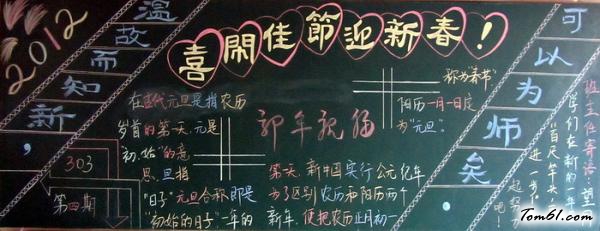 2012
温故而知新，
喜閙佳節迎新春！
可以为师矣
在古代元旦是指农历
岁首的第一天，元是
初、始"的意
思，旦指
"日子"元旦合称即是
"初始的日子"一年的
新年祝福
第一天。新中国实行公元纪年
为了区别农历和阳历两个
新年，便把农历正月初一
称为"春节"
阳历一月一日定
为"元旦"。
303
第四期
班主任寄语：望
学们在新的一年
"百尺竿头
进一步
起努
吧！
Tom61.com